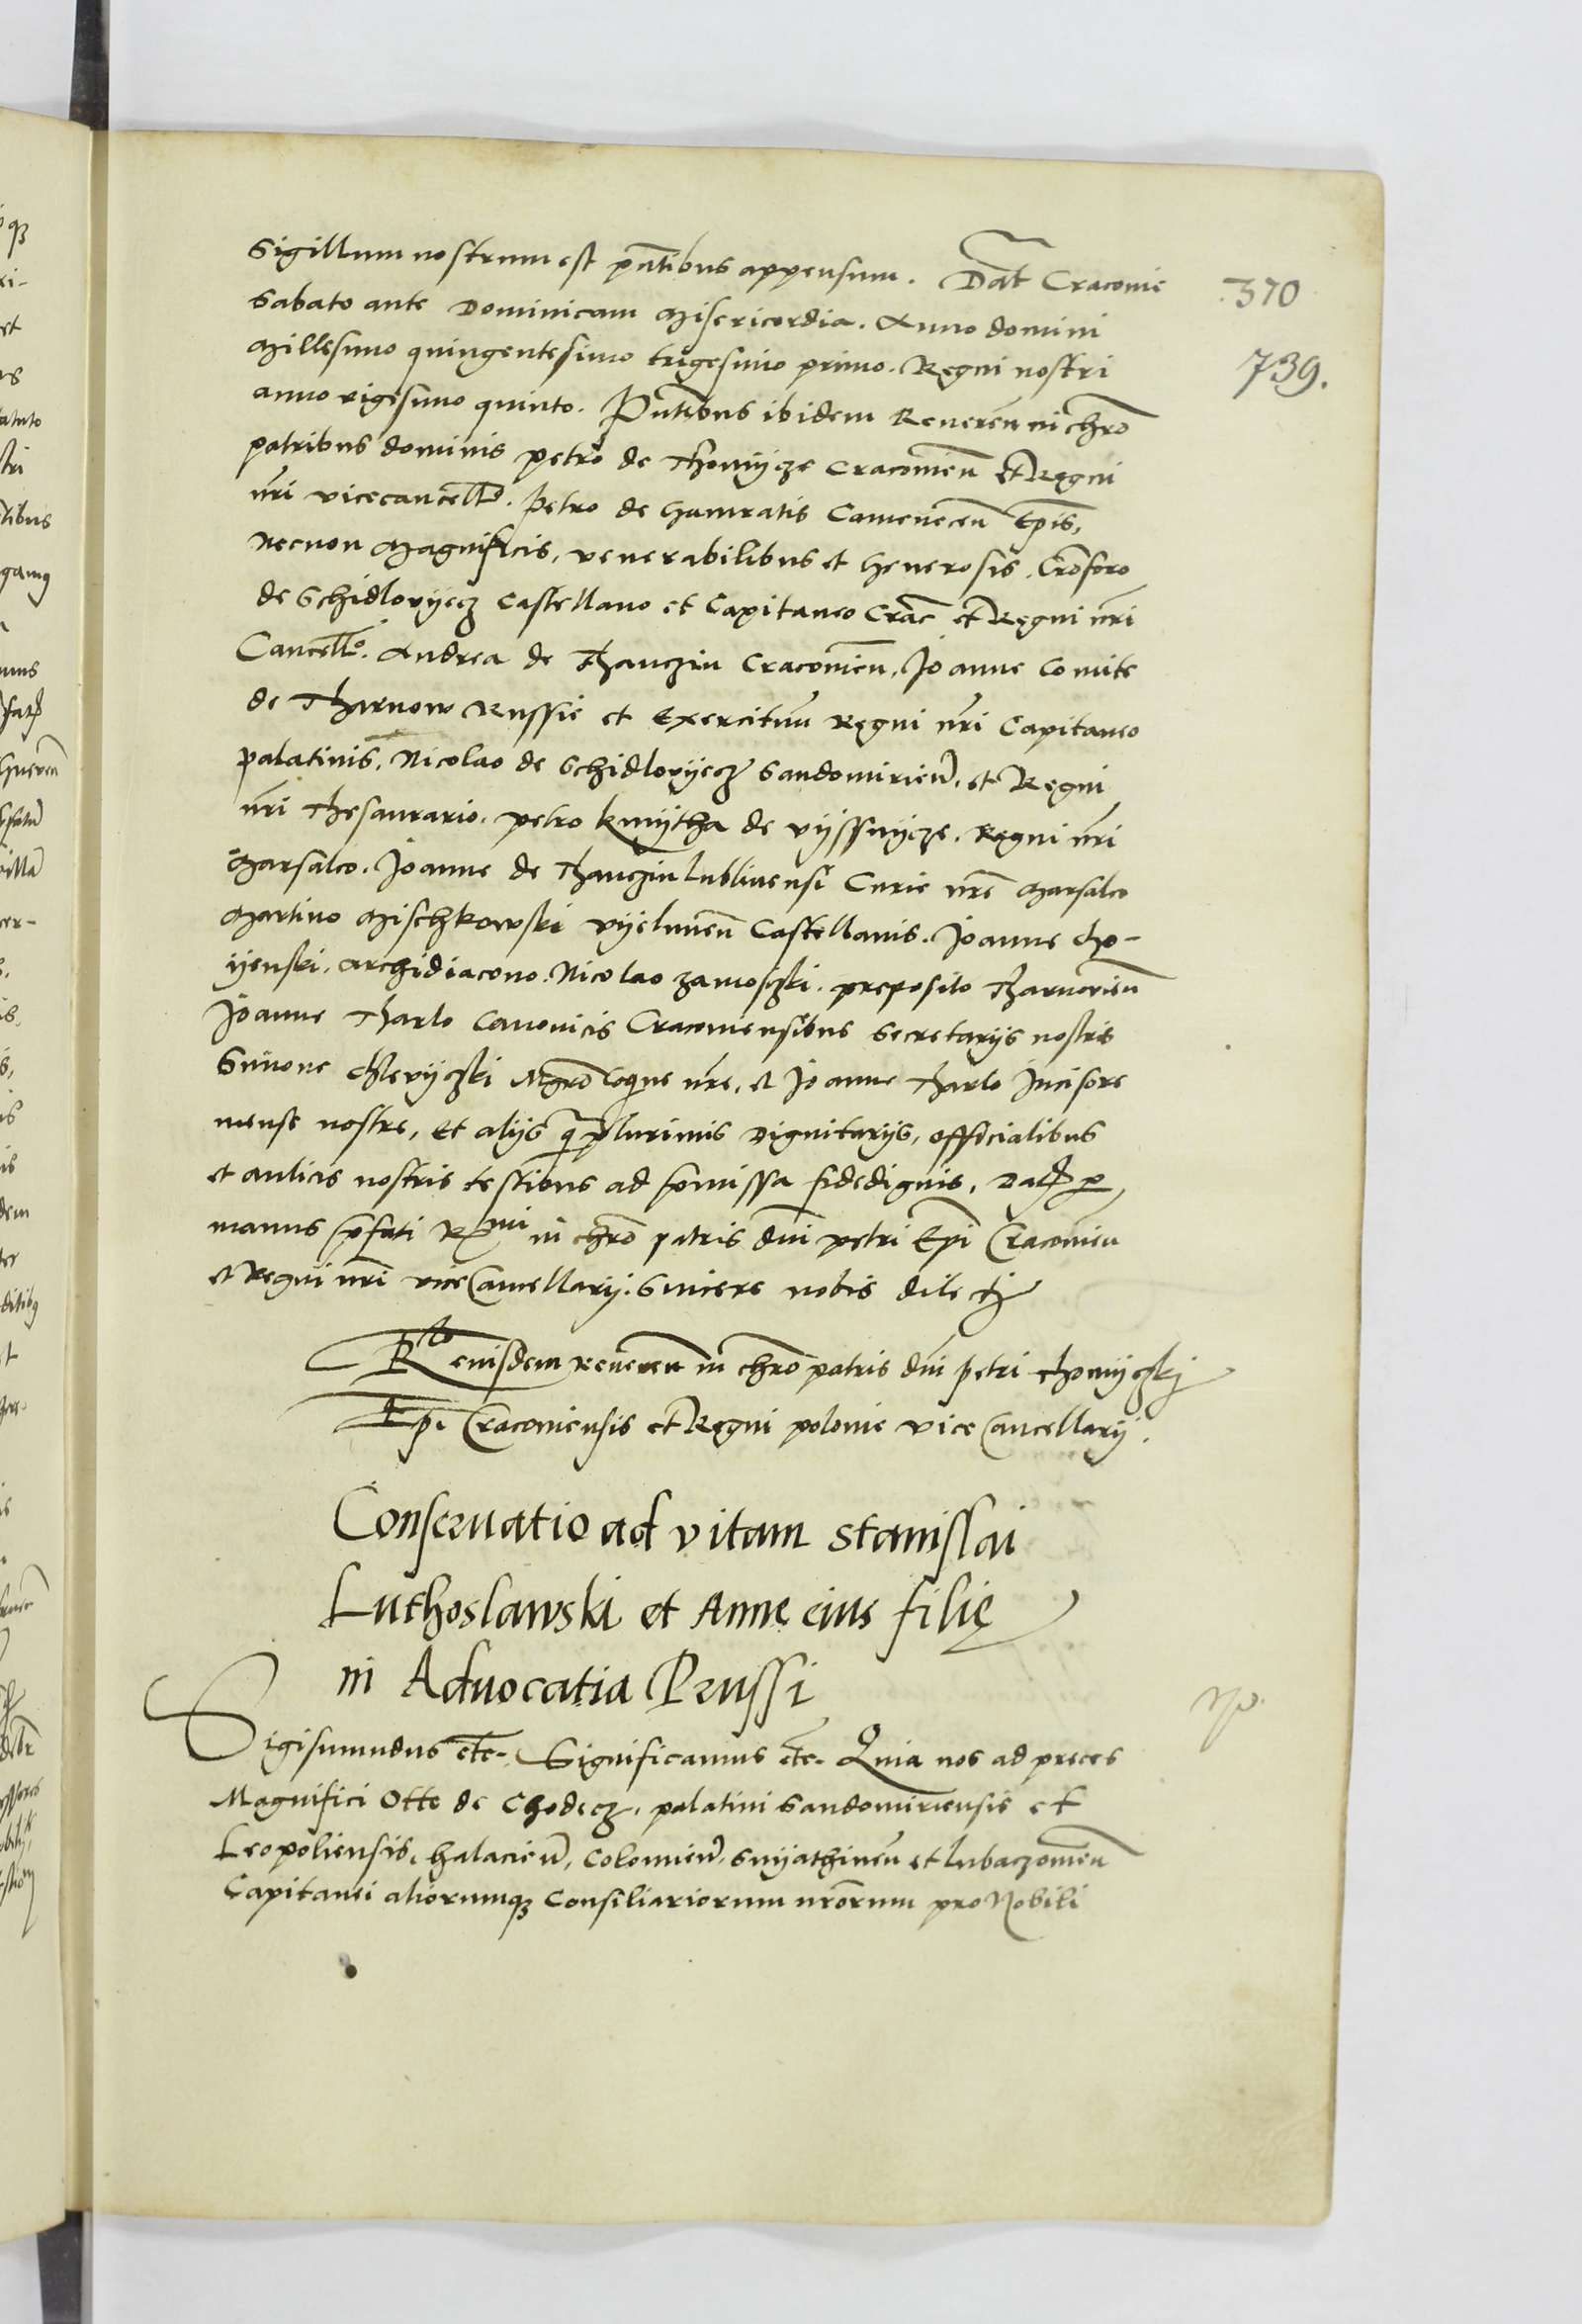 Sigillum nostrum est pñtibus appensum. Dat Cracovie
370
Sabato ante Dominicam Misericordia. Anno domini
Millesimo quingentesimo trigesimo primo. Regni nostri
739.
anno vigesimo quinto. Pñtibus ibidem Reveren in chro
patribus dominis petro de Thomijcze Cracovien et Regni
nri vicecancello. Petro de Gamratis Camenecen Epis,
Necnon Magnificis, venerabilibus et Generosis. Crosforo
de Schidlovyecz Castellano et Capitaneo Crac et Regni nri
Cancello. Andrea de Thanczin Cracovien, Joanne Comite
de Tharnow Russie et Exercituum Regni nri Capitaneo
palatinis, Nicolao de Schidlovyecz Sandomirien, et Regni
nri Thesaurario. petro kmijtha de vijssnijcze. Regni nri
Marsalco. Joanne de Thanczin lublinensi Curie nre Marsalco
Martino Mischkowski vijelunen Castellanis. Joanne Cho-
ijenski. Archidiacono. Nicolao zamosczki. preposito Tharnovien
Joanne Tharlo Canonicis Cracoviensibus Secretarijs nostris
Simone Chlevijczki Mgro coquine nre, et Joanne Tharlo Incisore
mense nostre, et alijs q plurimis Dignitarijs, officialibus
et aulicis nostris testibus ad pmissa fidedignis, Dat p
manus pfati R mi in chro patris dni petri Epi Cracovien
et Regni nri viceCancellarij. Sincere nobis dilecti
Rlo eiusdem Reveren in chro patris dni petri Thomijczki
Epi Cracoviensis et Regni polonie viceCancellarij.
Conservatio ad vitam Stanislai
Luthoslawski et Anne eius filię
in Advocatia Prussi
Sigismundus etc. Significamus etc. Quia nos ad preces
Magnifici Otte de Chodecz, palatini Sandomiriensis et
Leopoliensis, halacien, Colomien, Snijathinen et lubaczovien
Capitanei aliorumq Consiliariorum nrorum pro Nobili